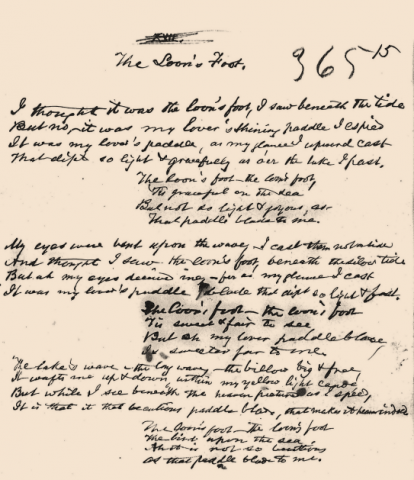 XIII.
The Loon's Foot.
365 15
I thought it was the loon's foot, I saw beneath the tide
But no, it was my lover's shining paddle I espied
It was my lover's paddle, as my glance I upward cast
That dipt so light & gracefully as o'er the lake I past.
The loon's foot - the loon's foot,
Tis graceful on the sea
But not so light & joyous, as
That paddle blade to me.
My eyes were bent upon the wave, I cast them not aside
And thought I saw the loon's foot, beneath the silver tide
But ah my eyes deceived me - for as my glance I cast
It was my lover's paddle blade that dipt so light & fast.
The loon's foot - the loon's foot
Tis sweet & fair to see
But oh my lover paddle blade,
Is sweeter far to me
The lake's wave - the long wave - the billow big & free,
It wafts me up & down, within my yellow light canoe
But while I see beneath the
It is that beauteous paddle blade, that makes it
The loon's foot - the loon's foot
The bird upon the sea
Ah it is not so beauteous
As that paddle blade to me.